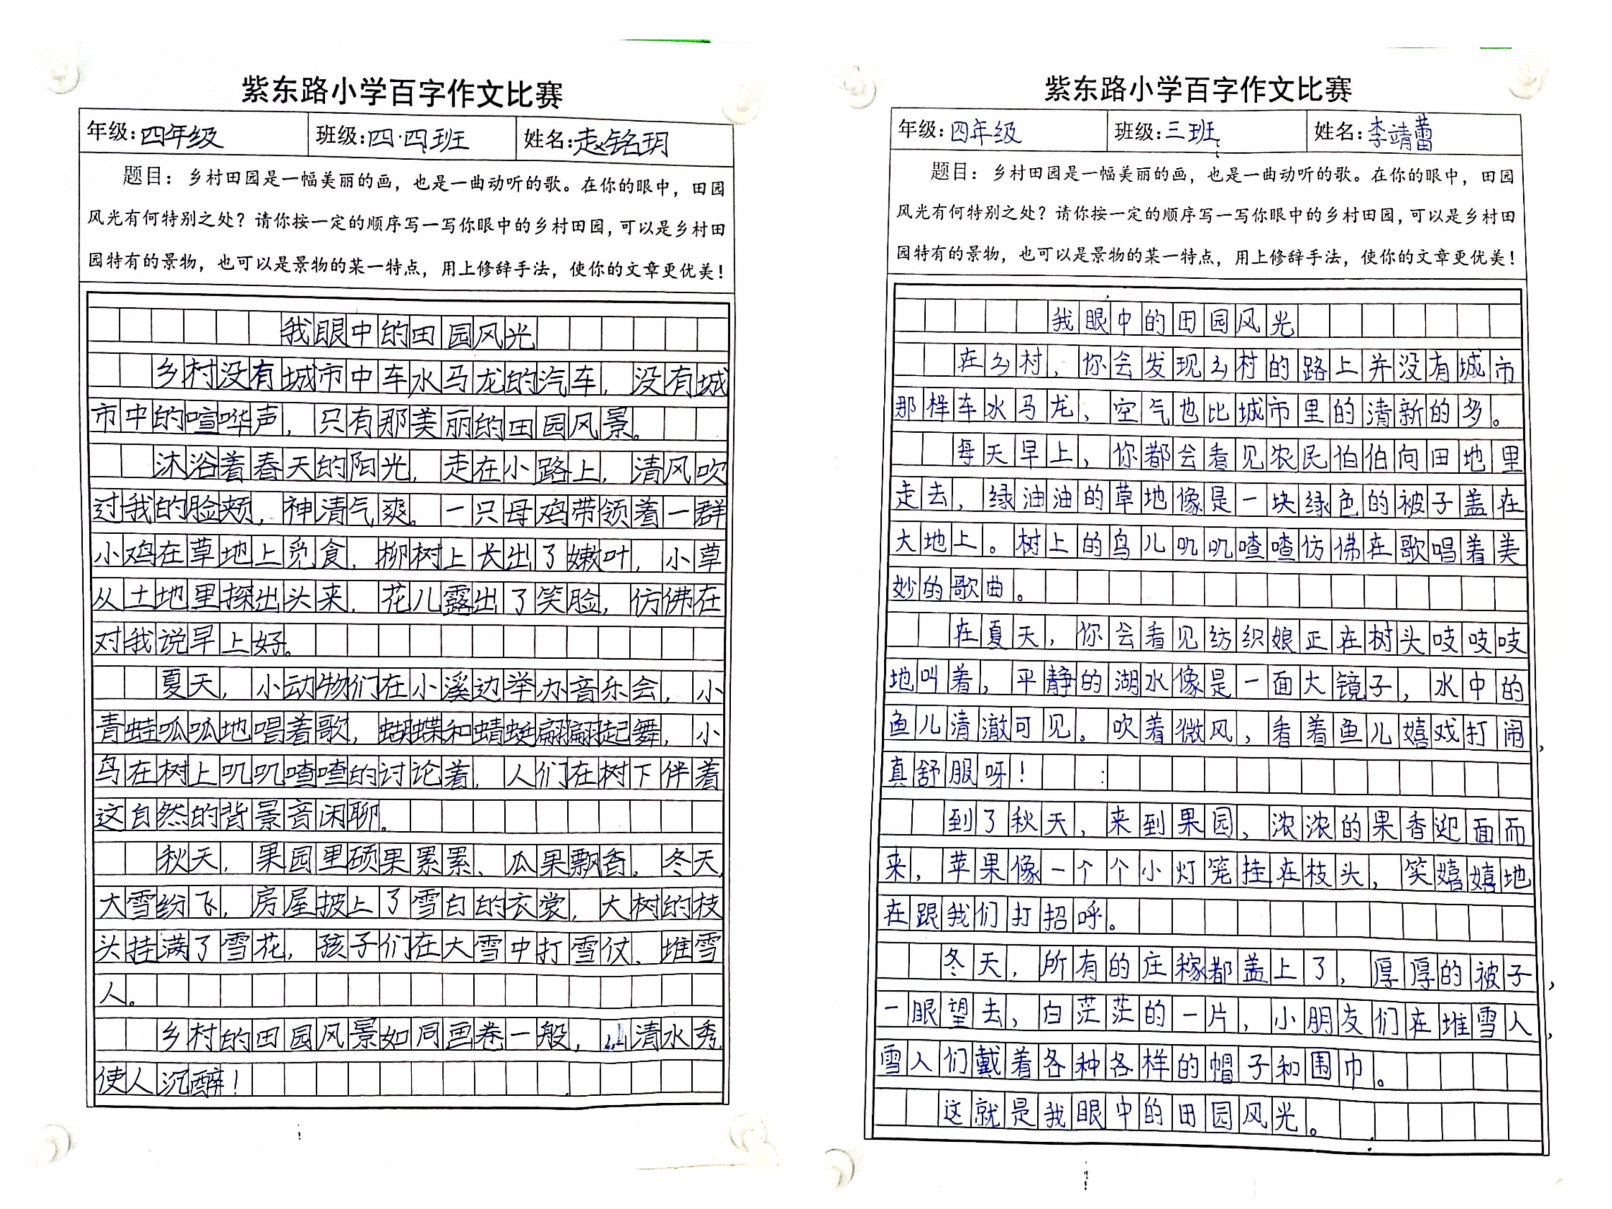 紫东路小学百字作文比赛
年级:四年级 班级:四·四班 姓名:赵铭玥
题目：乡村田园是一幅美丽的画，也是一曲动听的歌。在你的眼中，田园
风光有何特别之处？请你按一定的顺序写一写你眼中的乡村田园，可以是乡村田
园特有的景物，也可以是景物的某一特点，用上修辞手法，使你的文章更优美！
我眼中的田园风光
乡村没有城市中车水马龙的汽车，没有城
市中的喧哗声，只有那美丽的田园风景。
沐浴着春天的阳光，走在小路上，清风吹
过我的脸颊，神清气爽。一只母鸡带领着一群
小鸡在草地上觅食，柳树上长出了嫩叶，小草
从土地里探出头来，花儿露出了笑脸，仿佛在
对我说早上好。
夏天，小动物们在小溪边举办音乐会，小
青蛙呱呱地唱着歌，蝴蝶和蜻蜓翩翩起舞，小
鸟在树上叽叽喳喳的讨论着，人们在树下伴着
这自然的背景音闲聊。
秋天，果园里硕果累累、瓜果飘香。冬天，
大雪纷飞，房屋披上了雪白的衣裳，大树的枝
头挂满了雪花，孩子们在大雪中打雪仗、堆雪
人。
乡村的田园风景如同画卷一般，山清水秀，
使人沉醉！
紫东路小学百字作文比赛
年级:四年级 班级:三班 姓名:李靖蕾
题目：乡村田园是一幅美丽的画，也是一曲动听的歌。在你的眼中，田园
风光有何特别之处？请你按一定的顺序写一写你眼中的乡村田园，可以是乡村田
园特有的景物，也可以是景物的某一特点，用上修辞手法，使你的文章更优美！
我眼中的田园风光
在乡村，你会发现乡村的路上并没有城市
那样车水马龙，空气也比城市里的清新的多。
每天早上，你都会看见农民伯伯向田地里
走去，绿油油的草地像是一块绿色的被子盖在
大地上。树上的鸟儿叽叽喳喳仿佛在歌唱着美
妙的歌曲。
在夏天，你会看见纺织娘正在树头吱吱吱
地叫着，平静的湖水像是一面大镜子，水中的
鱼儿清澈可见。吹着微风，看着鱼儿嬉戏打闹，
真舒服呀！
到了秋天，来到果园，浓浓的果香迎面而
来，苹果像一个个小灯笼挂在枝头，笑嘻嘻地
在跟我们打招呼。
冬天，所有的庄稼都盖上了，厚厚的被子，
一眼望去，白茫茫的一片，小朋友们在堆雪人，
雪人们戴着各种各样的帽子和围巾。
这就是我眼中的田园风光。